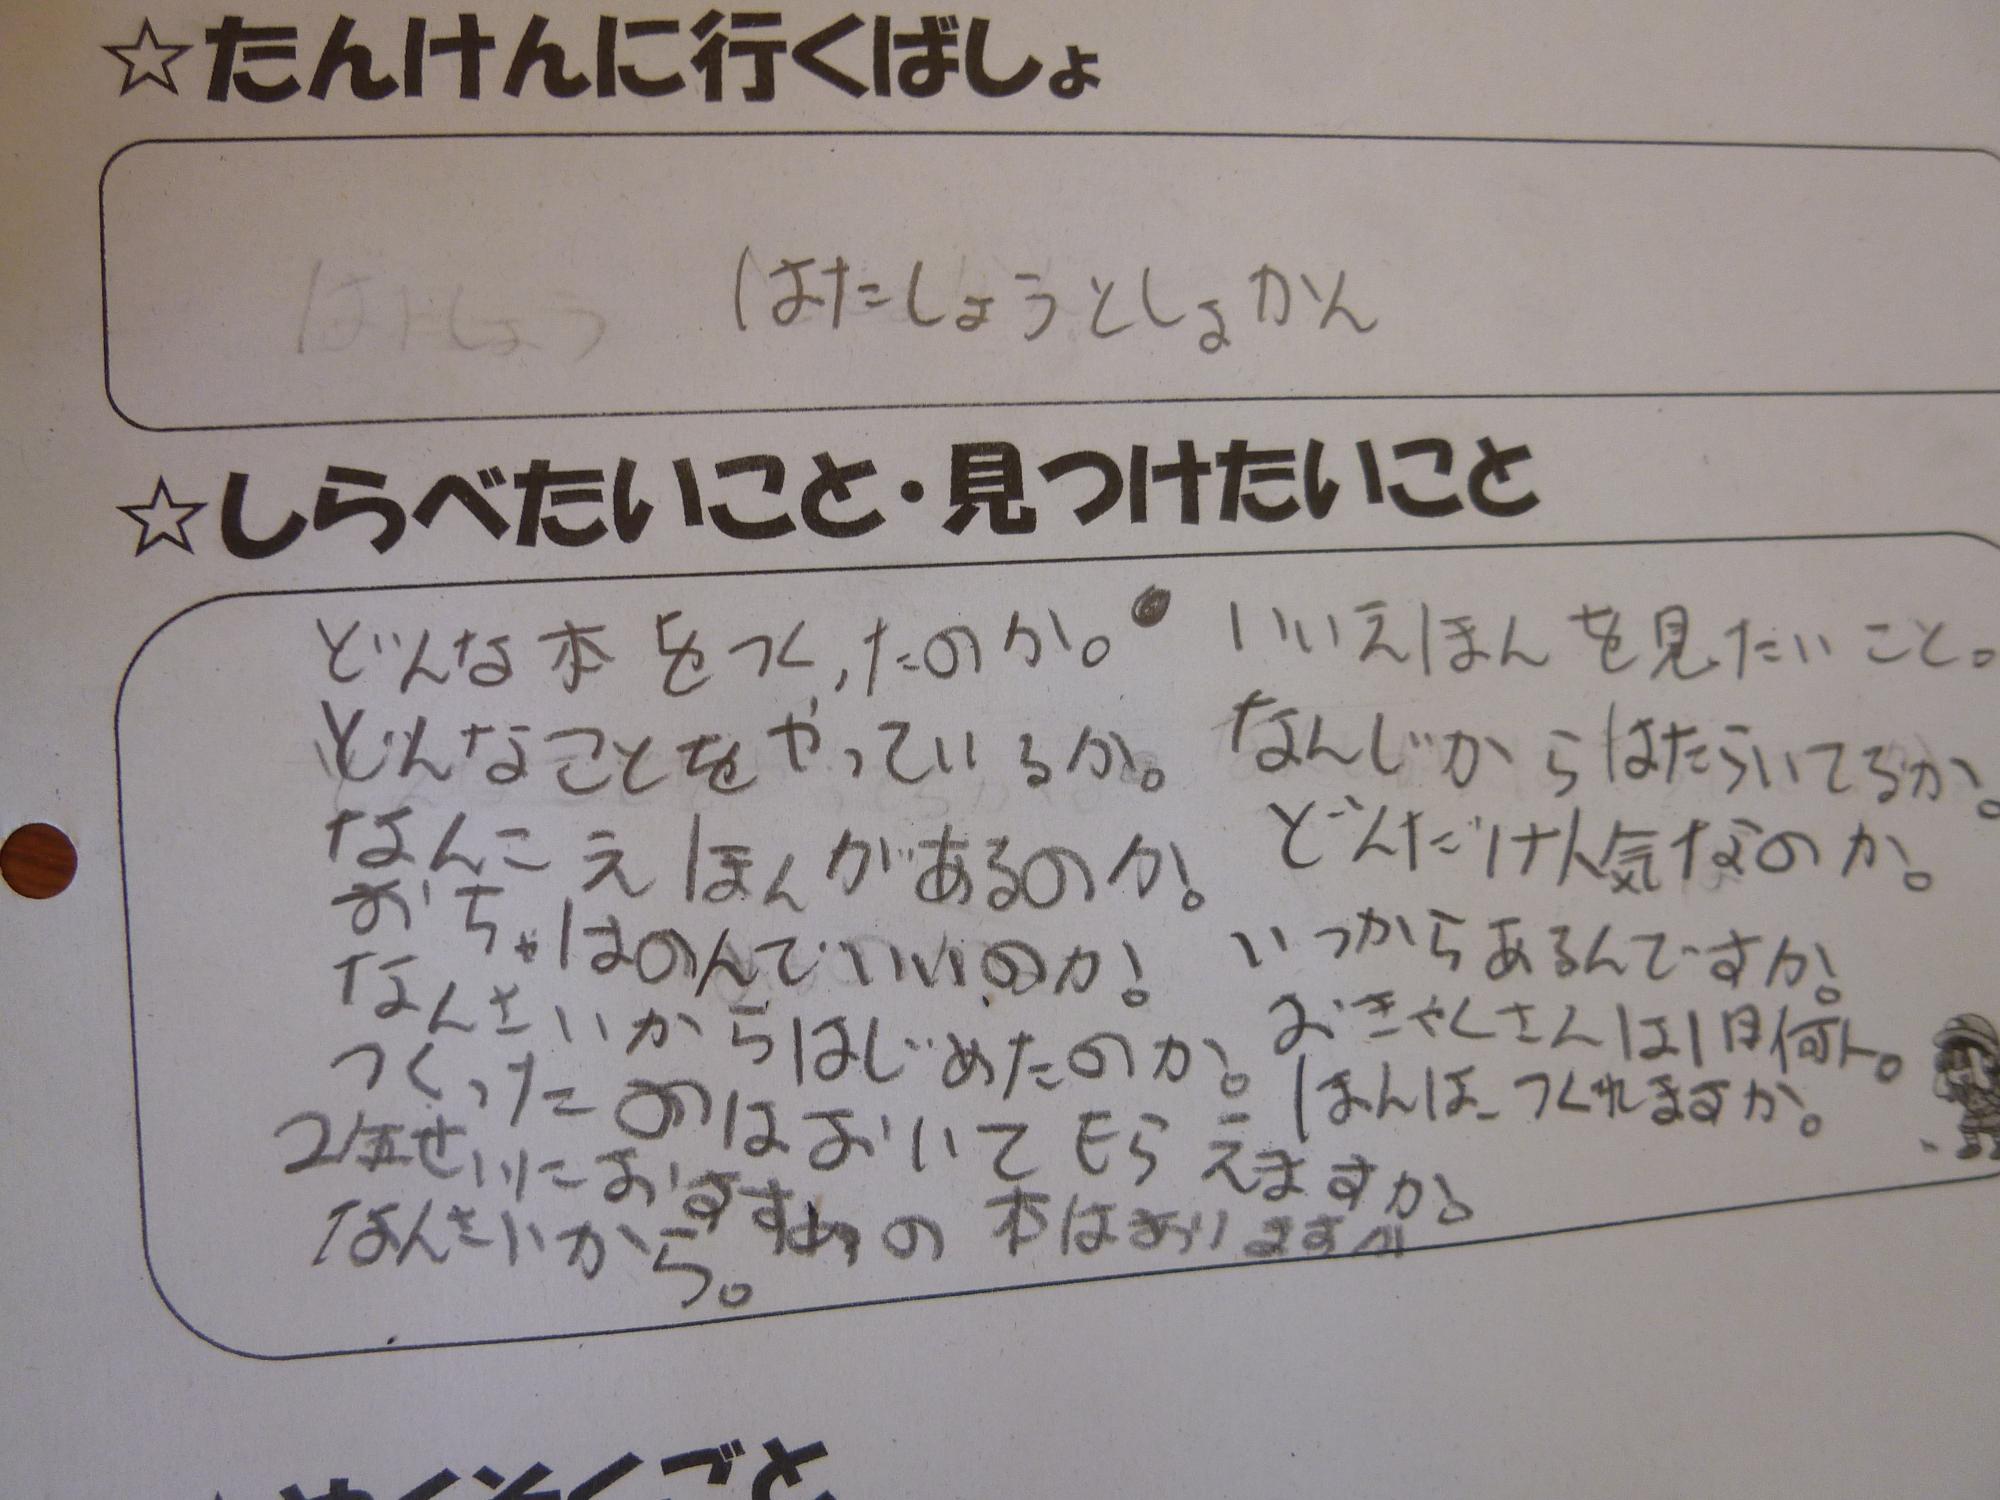 ☆たんけんに行くばしょ
はたしょう
はたしょうとしょかん
☆しらべたいこと・見つけたいこと
どんな本をつくったのか。
どんなことをやっているか。
なんこえほんがあるのか。
おちゃはのんでいいのか。
なんさいからはじめたのか。
つくったのはおいてもらえますか。
2年せいにおすすめの本はありますか
なんさいから。
いいえほんを見たいこと。
なんじからはたらいてるか。
どんだけ人気なのか。
いつからあるんですか。
おきゃくさんは1日何人。
ほんは、つくれますか。
やくそくごと